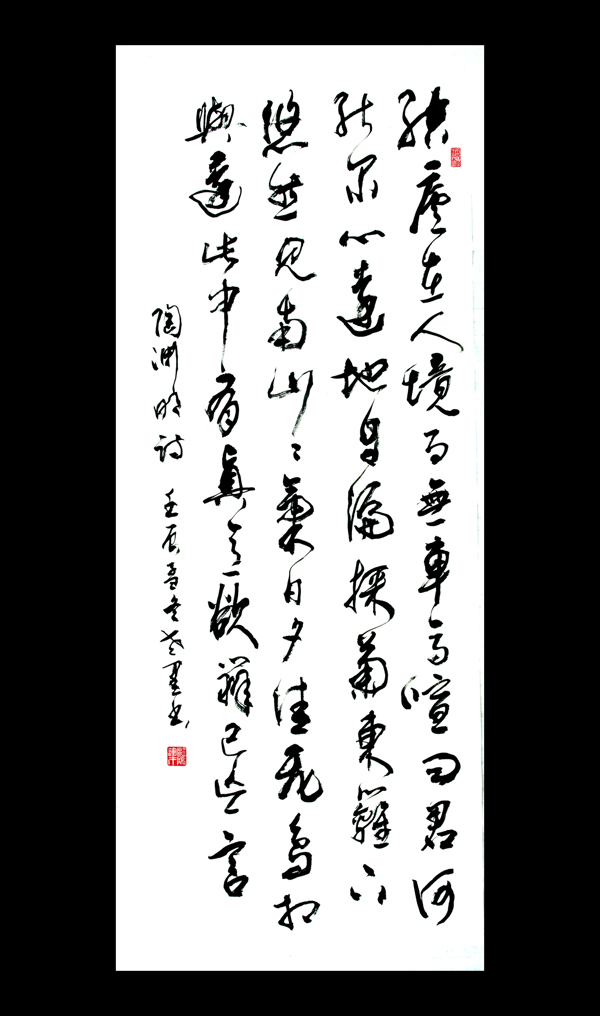 結廬在人境而無車馬喧問君何
能尔心遠地自偏採菊東籬下
悠然見南山〻氣日夕佳飛鳥相
與還此中有真意欲辨已忘言
陶渊明詩 壬辰孟冬